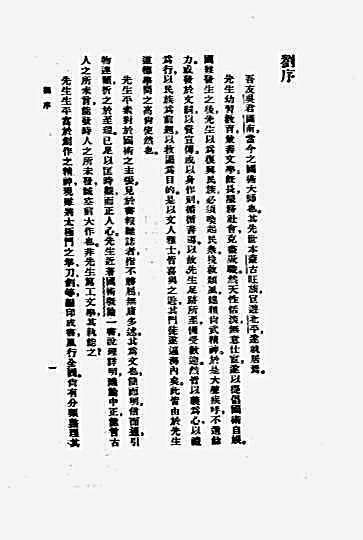 劉序
吾友吳君圖南。當今之國術大師也。其先世本蒙古旺族。宦遊北平。遂就居焉。
先生幼習教育。兼善文學。旣長。服務社會。克盡厥職。然天性恬淡。無意仕宦。遂以提倡國術自娛。
國難發生之後。先生以爲復興民族。必須喚起民衆。挽救頹風。遠稽尙武精神。於是大聲疾呼。不遺餘
力。或發於文詞。以資宣傳。或以身作則。循循善導。以故先生足跡所至。備受歡迎。然皆以義爲心。以禮
爲行。以民族爲前題。以救國爲目的。是以文人雅士。皆喜與之遊。其門徒遂遍海內矣。此皆由於先生
道德學問之高。有使然也。
先生平素對於國術之主張。見於書報雜誌者。指不勝屈。無庸多述。其爲文也。簡而明。信而通。引
物連類。折之於至理。已足以匡時歡。而正人心。先生近著國術概論一書。說理詳明。議論中正。能言古
人之所未言。能發時人之所未發。誠空前大作也。非先生篤工文學。其孰能之?
先生生平富於創作之精神。現雖將太極門之拳刀劍等。編印成書。風行全國。尙有分類整理。其
劉序
一